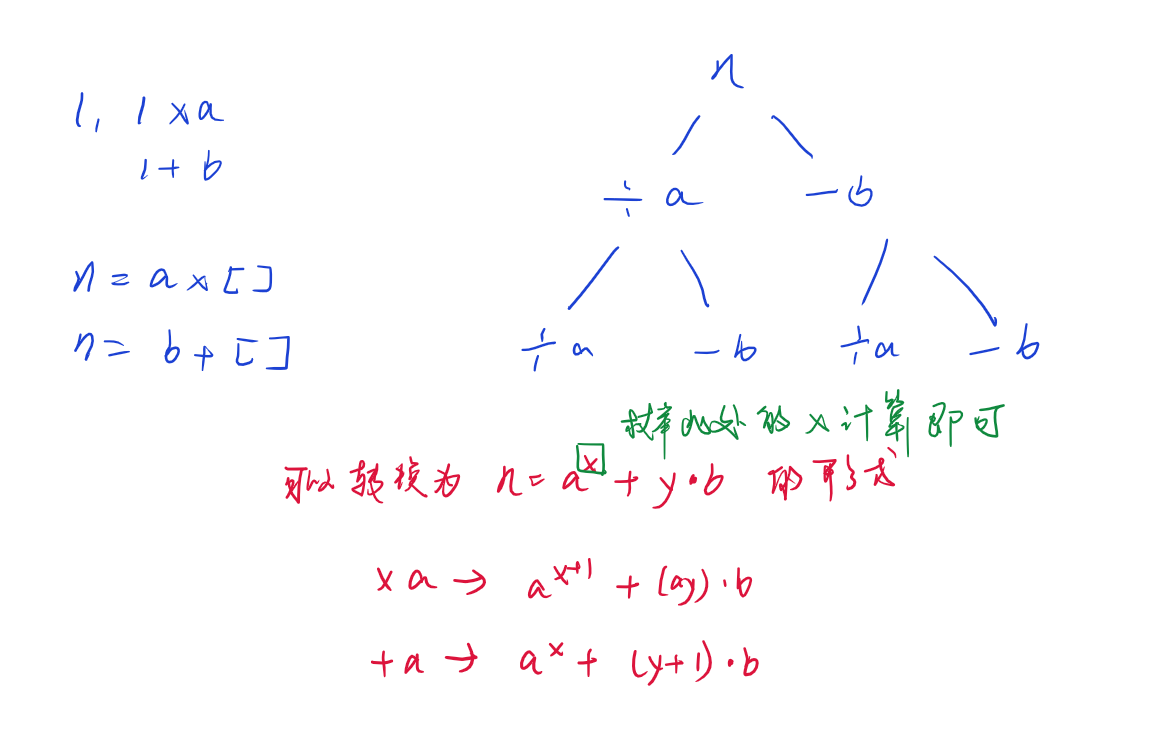 1, 1 × a
1 + b
n = a × [ ]
n = b + [ ]
n
÷ a － b
÷ a － b ÷ a － b
此处的 x 计算即可
可以转换为 n = a^x + y · b 的形式
× a → a^{x+1} + (ay) · b
+ a → a^x + (y+1) · b